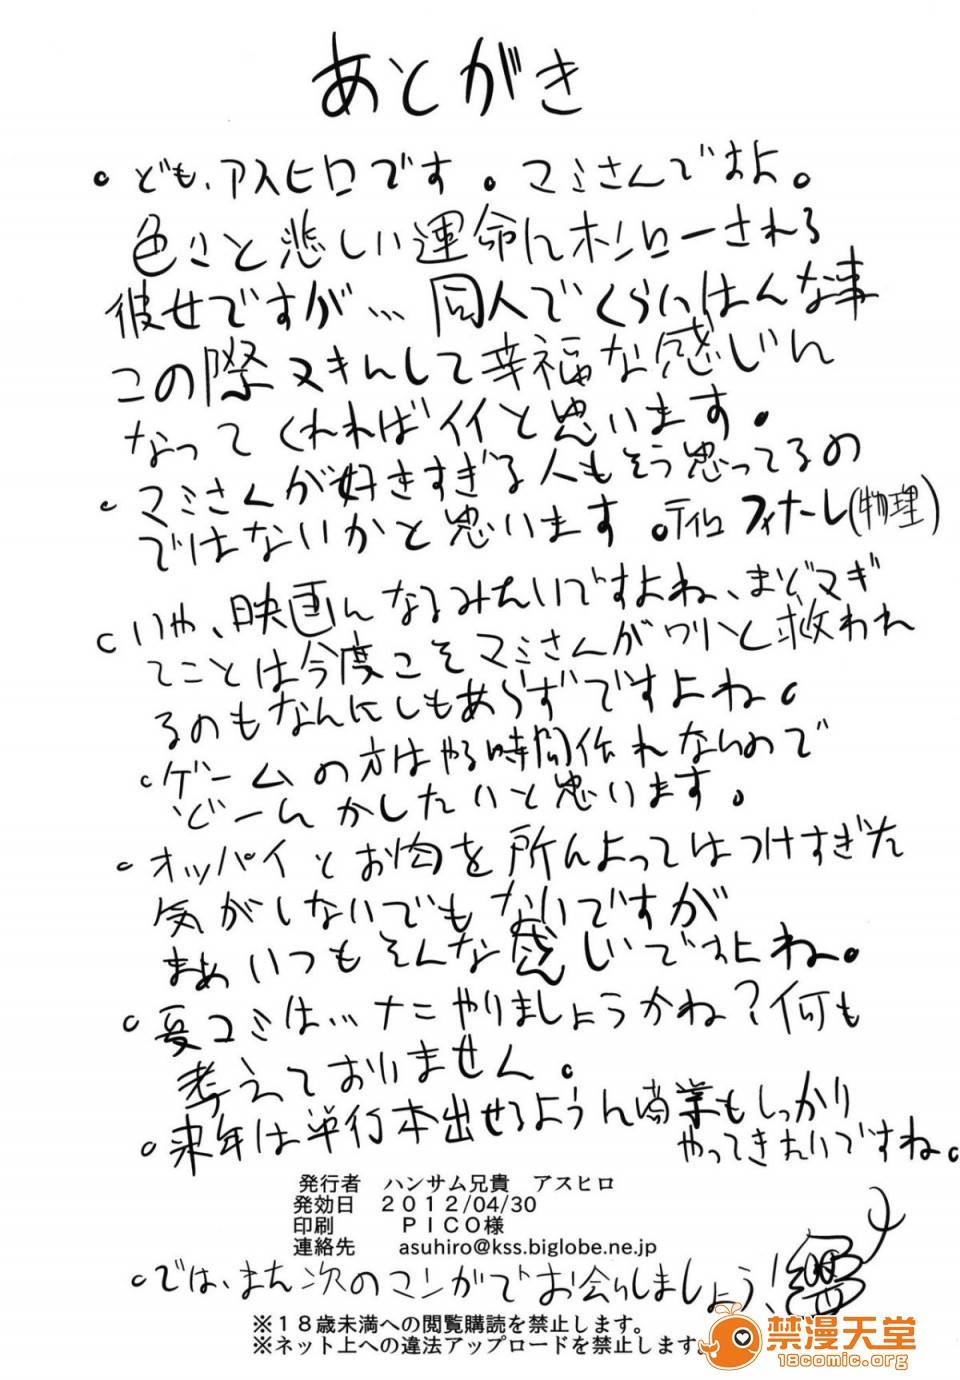 あとがき
・ども、アスヒロです。マミさんですよ。
色々と悲しい運命にホンローされる
彼女ですが… 同人でくらいはんな事
この際ヌキんして幸福な感じに
なってくれればイイと思います。
・マミさんが好きすぎる人もそう思ってるの
ではないかと思います。ティロ フィナーレ(物理)
・いや、映画になるみたいですよね、まどマギ
てことは今度こそマミさんがワリと救われ
るのもなんにしもあらずですよね。
・ゲームの方はやる時間作れないので
どーにかしたいと思います。
・オッパイとお肉を所によってはつけすぎた
気がしないでもないですが
まぁいつもそんな感じですよね。
・夏コミは… ナニやりましょうかね?何も
考えておりません。
・来年は単行本出せるように商業もしっかり
やってきたいですね。
発行者 ハンサム兄貴 アスヒロ
発効日 2012/04/30
印刷 PICO様
連絡先 asuhiro@kss.biglobe.ne.jp
・では、また次のマンガでお会いしましょう!
※18歳未満への閲覧購読を禁止します。
※ネット上への違法アップロードを禁止します。
禁漫天堂
18comic.org